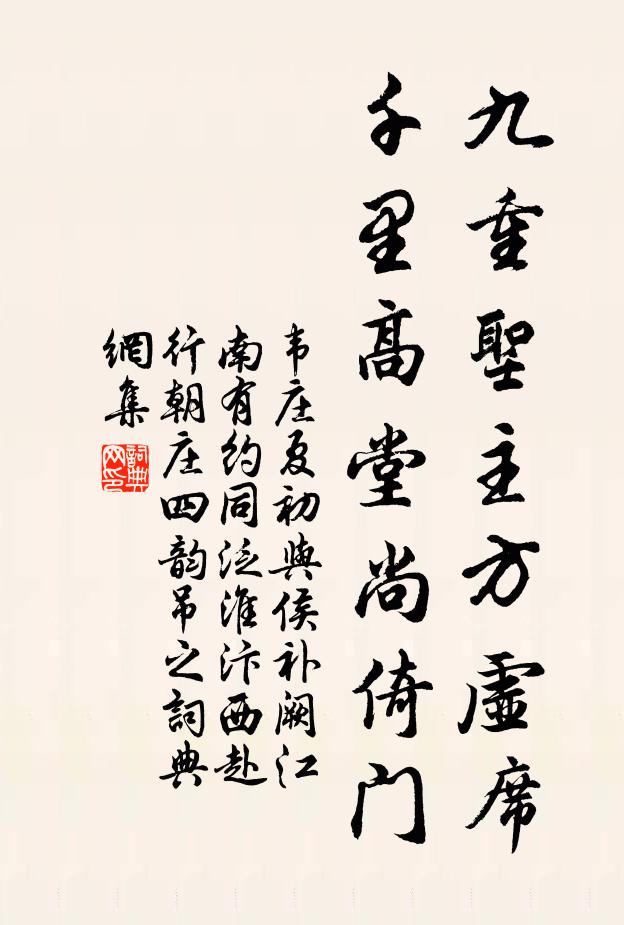 九重聖主方虛席
千里高堂尚倚門
韦庄夏初與侯补阙江
南有約同泛淮汴西赴
行朝庄四韵吊之詞典
網集
詞典网印